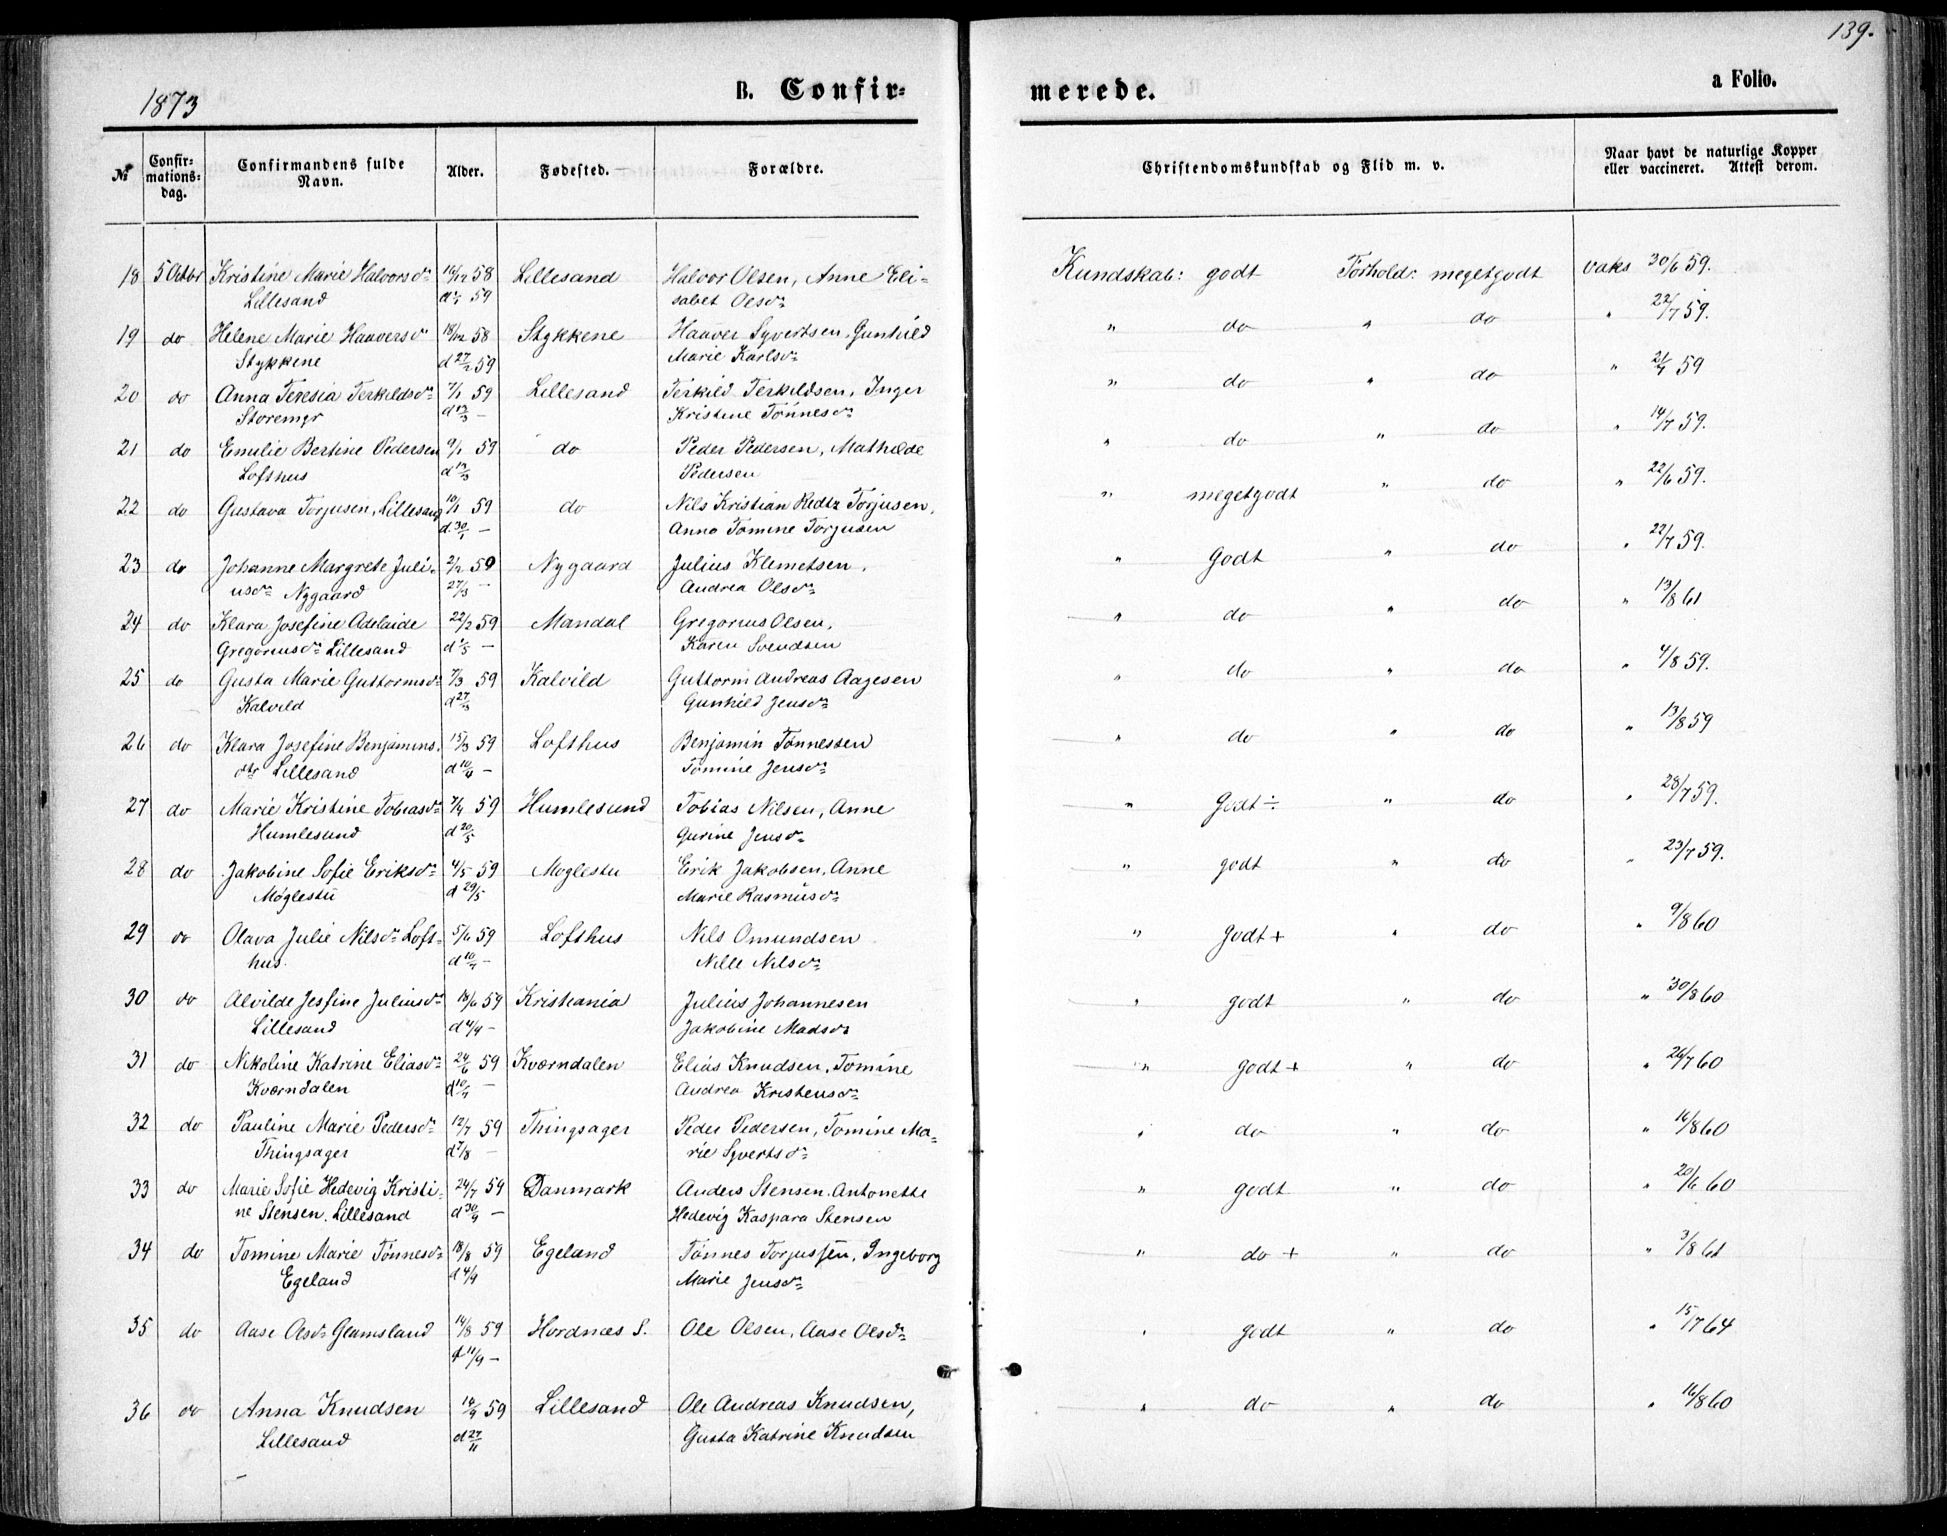 139.
1873
B. Confir-
merede.
a Folio.
No
Confir-
mations-
dag.
Confirmandens fulde
Navn.
Alder.
Fødested.
Forældre.
Christendomskundskab og Flid m. v.
Naar havt de naturlige Kopper
eller vaccineret. Attest derom.
18 5 Octbr Kristine Marie Halvorsdr 58 Lillesand Halvor Olsen, Anne Eli- Kundskab: godt Forhold: megetgodt vaks 30/6 59.
Lillesand 59 sabet Olsdr
19 do Helene Marie Haaversdr 18/12 58 Stykkene Haaver Syvertsen, Gunhild " do " do " 22/7 59.
Stykkene d 27/2 59 Marie Karlsdr
20 do Anna Teresia Terkildsdr 7/1 59 Lillesand Terkild Terkildsen, Inger " do " do " 59
Storemyr d 13/3 — Kristine Tønnesdr
21 do Emilie Bertine Pedersen 9/1 59 do Peder Pedersen, Mathilde " do " do " 14/7 59.
Lofthus d 13/3 Pedersen
22 do Gustava Torjusen, Lillesand 10/1 59 do Nils Kristian Redtz Torjusen, " megetgodt " do " 22/6 59.
d. 30/1 — Anna Tomine Torjusen
23 do Johanne Margrete Juli- 2/2 59 Nygaard Julius Klemetsen, " Godt " do " 22/7 59.
usdr Nygaard 27/3 — Andrea Olsdr
24 do Klara Josefine Adelaide 22/2 59 Mandal Gregorius Olsen, " do " do " 13/8 61
Gregoriusdr Lillesand d 1/5 — Karen Svendsen
25 do Gusta Marie Guttormsdr 7/3 59 Kalvild Guttorm Andreas Aagesen " do " do " 4/8 59.
Kalvild d 27/3 Gunhild Jensdr
26 do Klara Josefine Benjamins- 15/3 59 Lofthus Benjamin Tønnessen " do " do " 13/8 59
dtr Lillesand d 10/4 — Tomine Jensdr
27 do Marie Kristine Tobiasdr 7/4 59 Humlesund Tobias Nilsen, Anne " Godt ÷ " do " 28/7 59.
Humlesund d 20/5 Gurine Jensdr
28 do Jakobine Sofie Eriksdr 4/5 59 Moglestu Erik Jakobsen, Anne " godt " do " 23/7 59.
Møglestu d 29/5 Marie Rasmusdr
29 do Olava Julie Nilsdr Loft- 5/6 59 Lofthus Nils Omundsen " godt + " do " 9/8 60
hus. d 10/7 — Nille Nilsdr
30 do Alvilde Jesfine Juliusdr 18/6 59 Kristiania Julius Johannesen " godt " do " 30/8 60
Lillesand d 4/9 — Jakobine Madsdr
31 do Nikoline Katrine Eliasdr 24/6 59 Kværndalen Elias Knudsen, Tomine " godt + " do " 26/7 60
Kværndalen d 10/7 — Andrea Kristensdr
32 do Pauline Marie Pedersdr 12/7 59 Thingsager Peder Pedersen, Tomine Ma- " do " do " 16/8 60
Thingsager d 7/8 — rie Syvertsdr
33 do Marie Sofie Hedevig Kristi- 24/7 59 Danmark Anders Stensen. Antonette " godt " do " 20/6 60
ne Stensen. Lillesand d 30/9 — Hedevig Kaspara Stensen
34 do Tomine Marie Tønnesdr 18/8 59 Egeland Tønnes Torjussen, Ingeborg " do + " do " 3/8 61
Egeland d 4/9 Marie Jensdr
35 do Aase Olsdr Glamsland 14/8 59 Hordnæs S. Ole Olsen, Aase Olsdr " godt " do " 15/7 64
d 11/9 —
36 do Anna Knudsen 14/9 59 Lillesand Ole Andreas Knudsen, " do " do " 16/8 60
Lillesand d 27/11 Gusta Katrine Knudsen